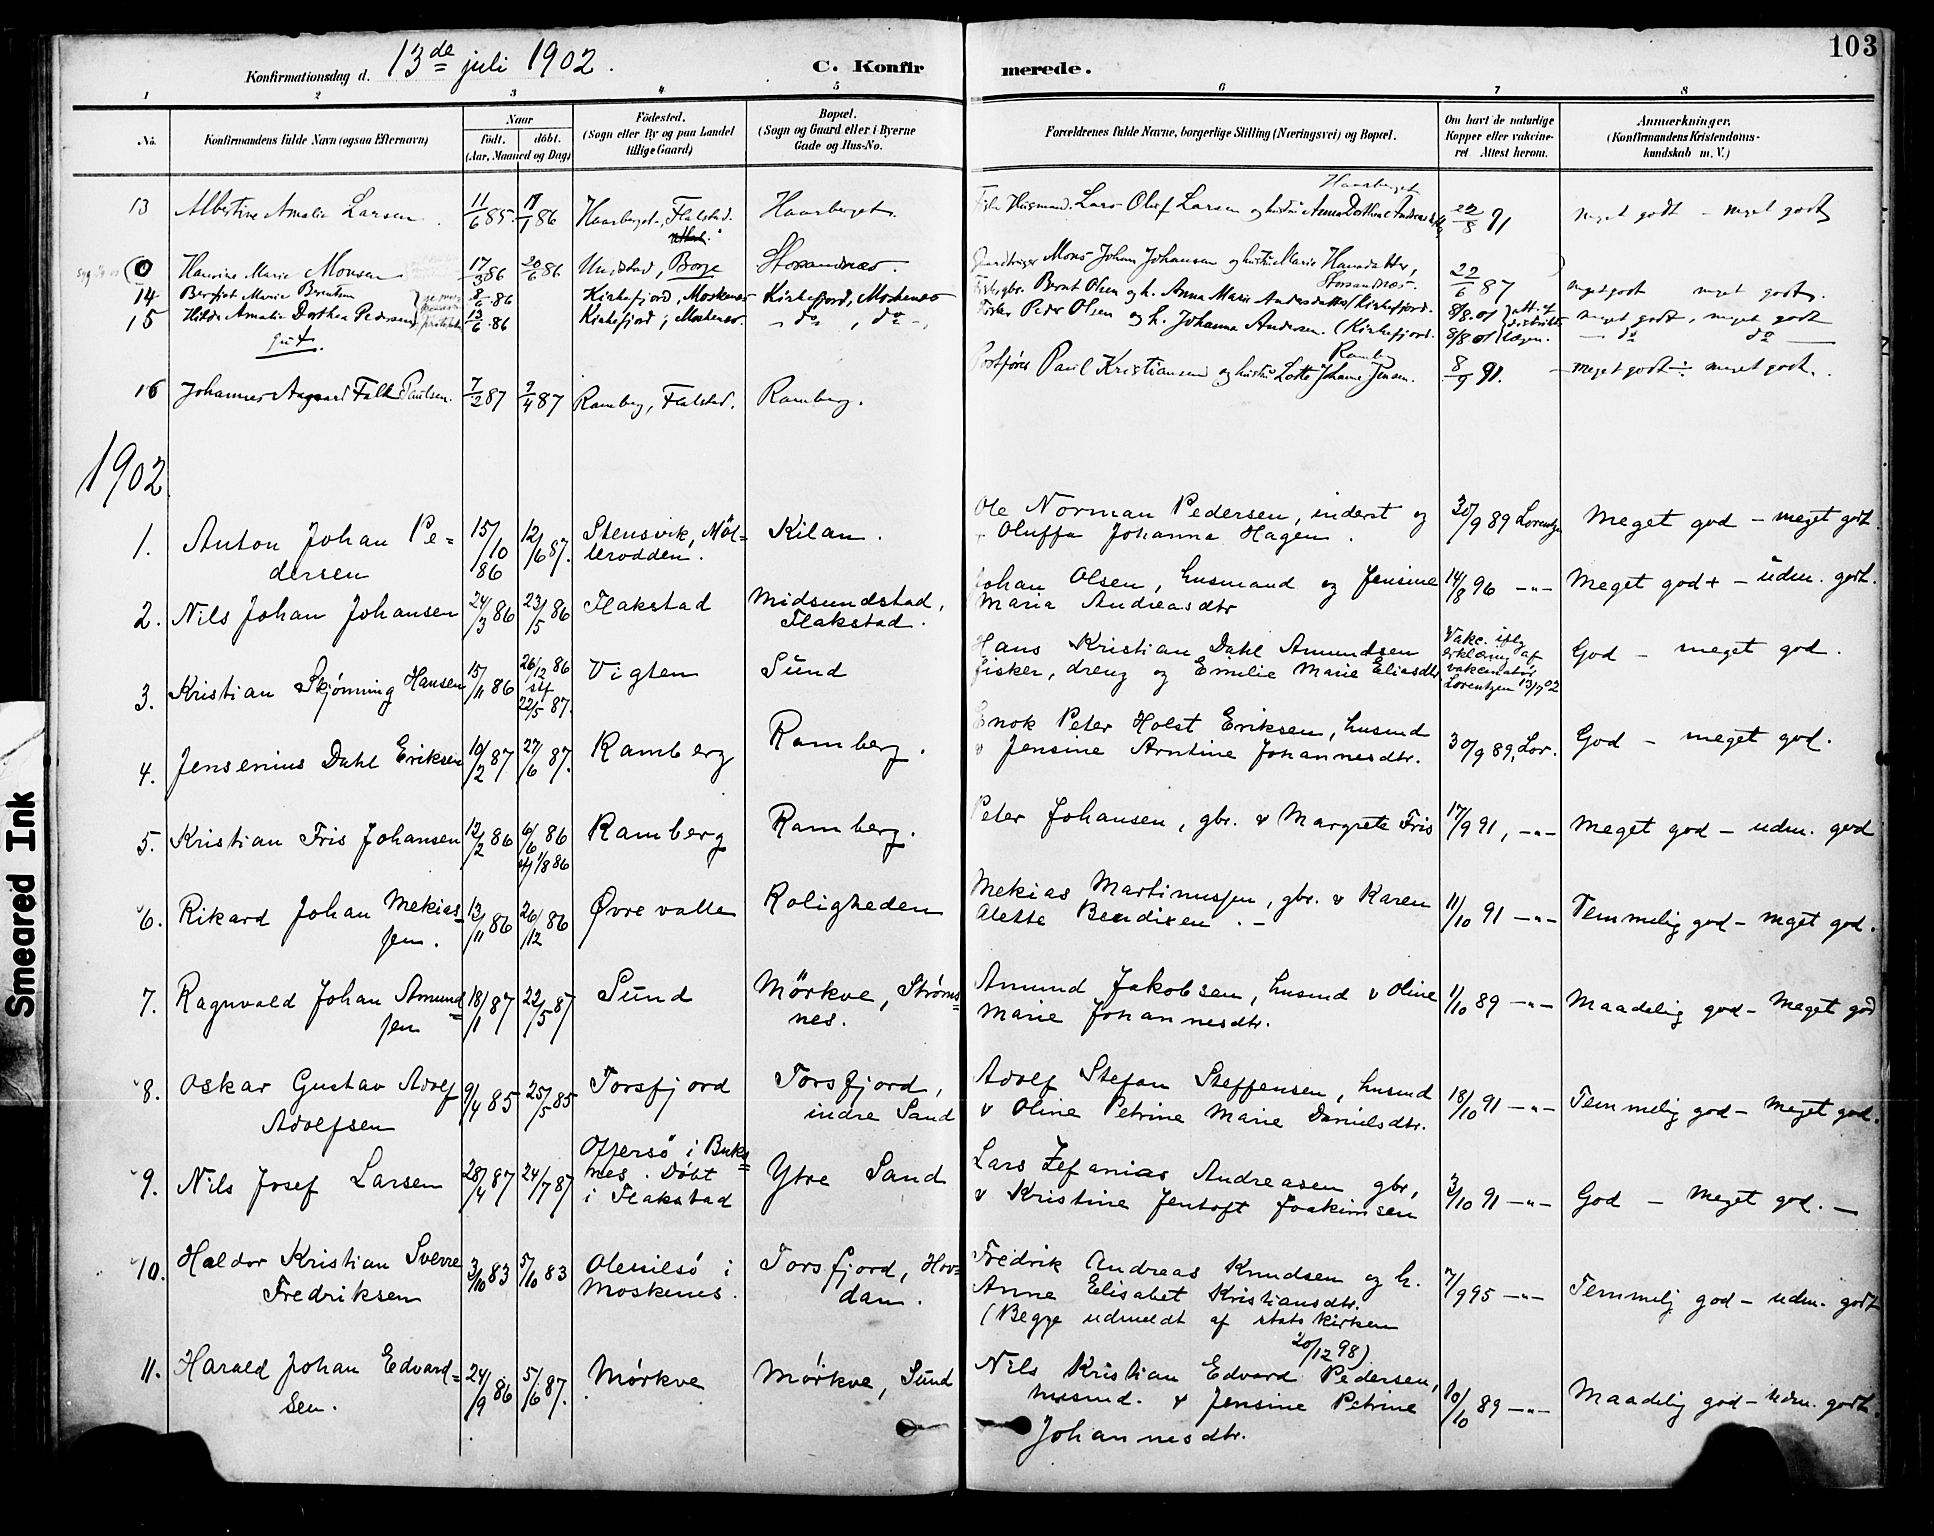 103
Konfirmationsdag d. 13de juli 1902.
C. Konfirmerede.
1 2 3 4 5 6 7 8
No.
Konfirmandens fulde Navn (ogsaa Efternavn)
Naar
født. døbt.
(Aar, Maaned og Dag)
Födested.
(Sogn eller By og paa Landet
tillige Gaard)
Bopæl.
(Sogn og Gaard eller i Byerne
Gade og Hus-No.
Forældrenes fulde Navne, borgerlige Stilling (Næringsvei) og Bopæl.
Om havt de naturlige
Kopper eller vakcine-
ret Attest herom.
Anmærkninger,
(Konfirmandens Kristendoms-
kundskab m. V.)
13 Albertine Amalie Larsen 11/6 85. 86 Haarberget, Flakstad. Haarberget. Husmand. Lars Oluf Larsen og hustru Anna Dorthea 91 meget godt - meget godt
0 Hansine Marie Monsen 17/3 86 20/6 86 Unstad, Borge Storsandnæs. Mons Johan Johansen og hustru Marie Hansdatter, Storsandnæs. 22/6 87 meget godt meget godt.
14 Bergitt Marie Berntsen 8/6 86 Kirkefjord, Moskenæs Kirkefjord, Moskenæs Bernt Olsen og h. Anna Marie Andersdatter (Kirkefjord. 8/8.01 meget godt, meget godt
15 Hilda Amalie Dorthea Pedersen 13/6 86 Kirkefjord, Moskenæs. - do , do -, Fisker Peder Olsen og h. Johanna Andersen. (Kirkefjord. 8/8 01 - do do -
gut.
16 Johannes Aagaard Falk Paulsen. 7/2 87 9/4 87 Ramberg, Flakstad. Ramberg. Paul Kristiansen og hustru Lotte Johanne Jensen. Ramberg 8/9 91. meget godt - meget godt.
1902
1. Anton Johan Pe=
dersen 15/10 86 12/6 87. Stensvik, Möl-
lerodden. Kilan. Ole Norman Pedersen, inderst og
Oluffa Johanna Hagen. 30/9 89 Lorentzen Meget god - meget godt.
2. Nils Johan Johansen 24/3 86 23/5 86 Flakstad Midsundstad,
Flakstad. Johan Olsen, husmand og Jensine
Maria Andreasdtr 14/8 96 -"- Meget god + - udm. godt.
3. Kristian Skjønning Hansen 15/11 86 26/12 86
stf
22/5 87. Vigten Sund Hans Kristian Dahl Amundsen
fisker, dreng og Emilie Marie Eliasdtr Vakc. iflg
erklæring af
vakcinatør
Lorentzen 13/7 02 God - meget god.
4. Jensenius Dahl Eriksen 10/2 87 27/6 87. Ramberg Ramberg. Enok Peter Holst Eriksen, husmd
& Jensine Arntine Johannesdtr. 30/9 89, Lor. God - meget god.
5. Kristian Fris Johansen 12/2 86 6/6 86
1/8 86 Ramberg Ramberg. Peter Johansen, gbr. & Margrete Fris 17/9 91, -"- Meget god - udm. god
6. Rikard Johan Mekias=
sen. 13/11 86 26/12 86 Øvre valle Roligheden Mekias Martinussen, gbr. & Karen
Alette Bendixen. - 11/10 91 -"- Temmelig god - meget god.
7. Ragnvald Johan Amund=
sen 18/1 87 22/5 87 Sund Mörkve, Strøms=
nes. Amund Jakobsen, husmd & Oline
Marie Johannesdtr. 11/10 89 -"- Maadelig god - Meget god
8. Oskar Gustav Adolf
Adolfsen 9/4 85 25/5 85 Torsfjord Torsfjord,
indre Sand Adolf Stefan Steffensen, husmd
& Oline Petrine Marie Danielsdtr. 18/10 91 -"- Temmelig god - Meget god.
9. Nils Josef Larsen 28/4 87 24/7 87 Offersö i Buks=
nes. Döbt
i Flakstad Ytre Sand Lars Zefanias Andreasen gbr,
& Kristine Jentoft Joakimsen 3/10 91 -"- God - Meget god. -
10. Haldor Kristian Sverre
Fredriksen 3/10 83 5/10 83 Olenilsö i
Moskenes. Torsfjord, Hov-
dan. Fredrik Andreas Knudsen og h.
Anne Elisabet Kristiansdtr.
(Begge udmeldt af statskirken
20/12 98) 7/9 95 -"- Temmelig god - udm. godt
11. Harald Johan Edvard=
sen. 24/9 86 5/6 87. Mörkve Mörkve, Sund Nils Kristian Edvard Pedersen,
husmd. & Jensine Petrine
Johannesdtr. 10/10 89 -"- Maadelig god - udm. godt.
Smeared Ink